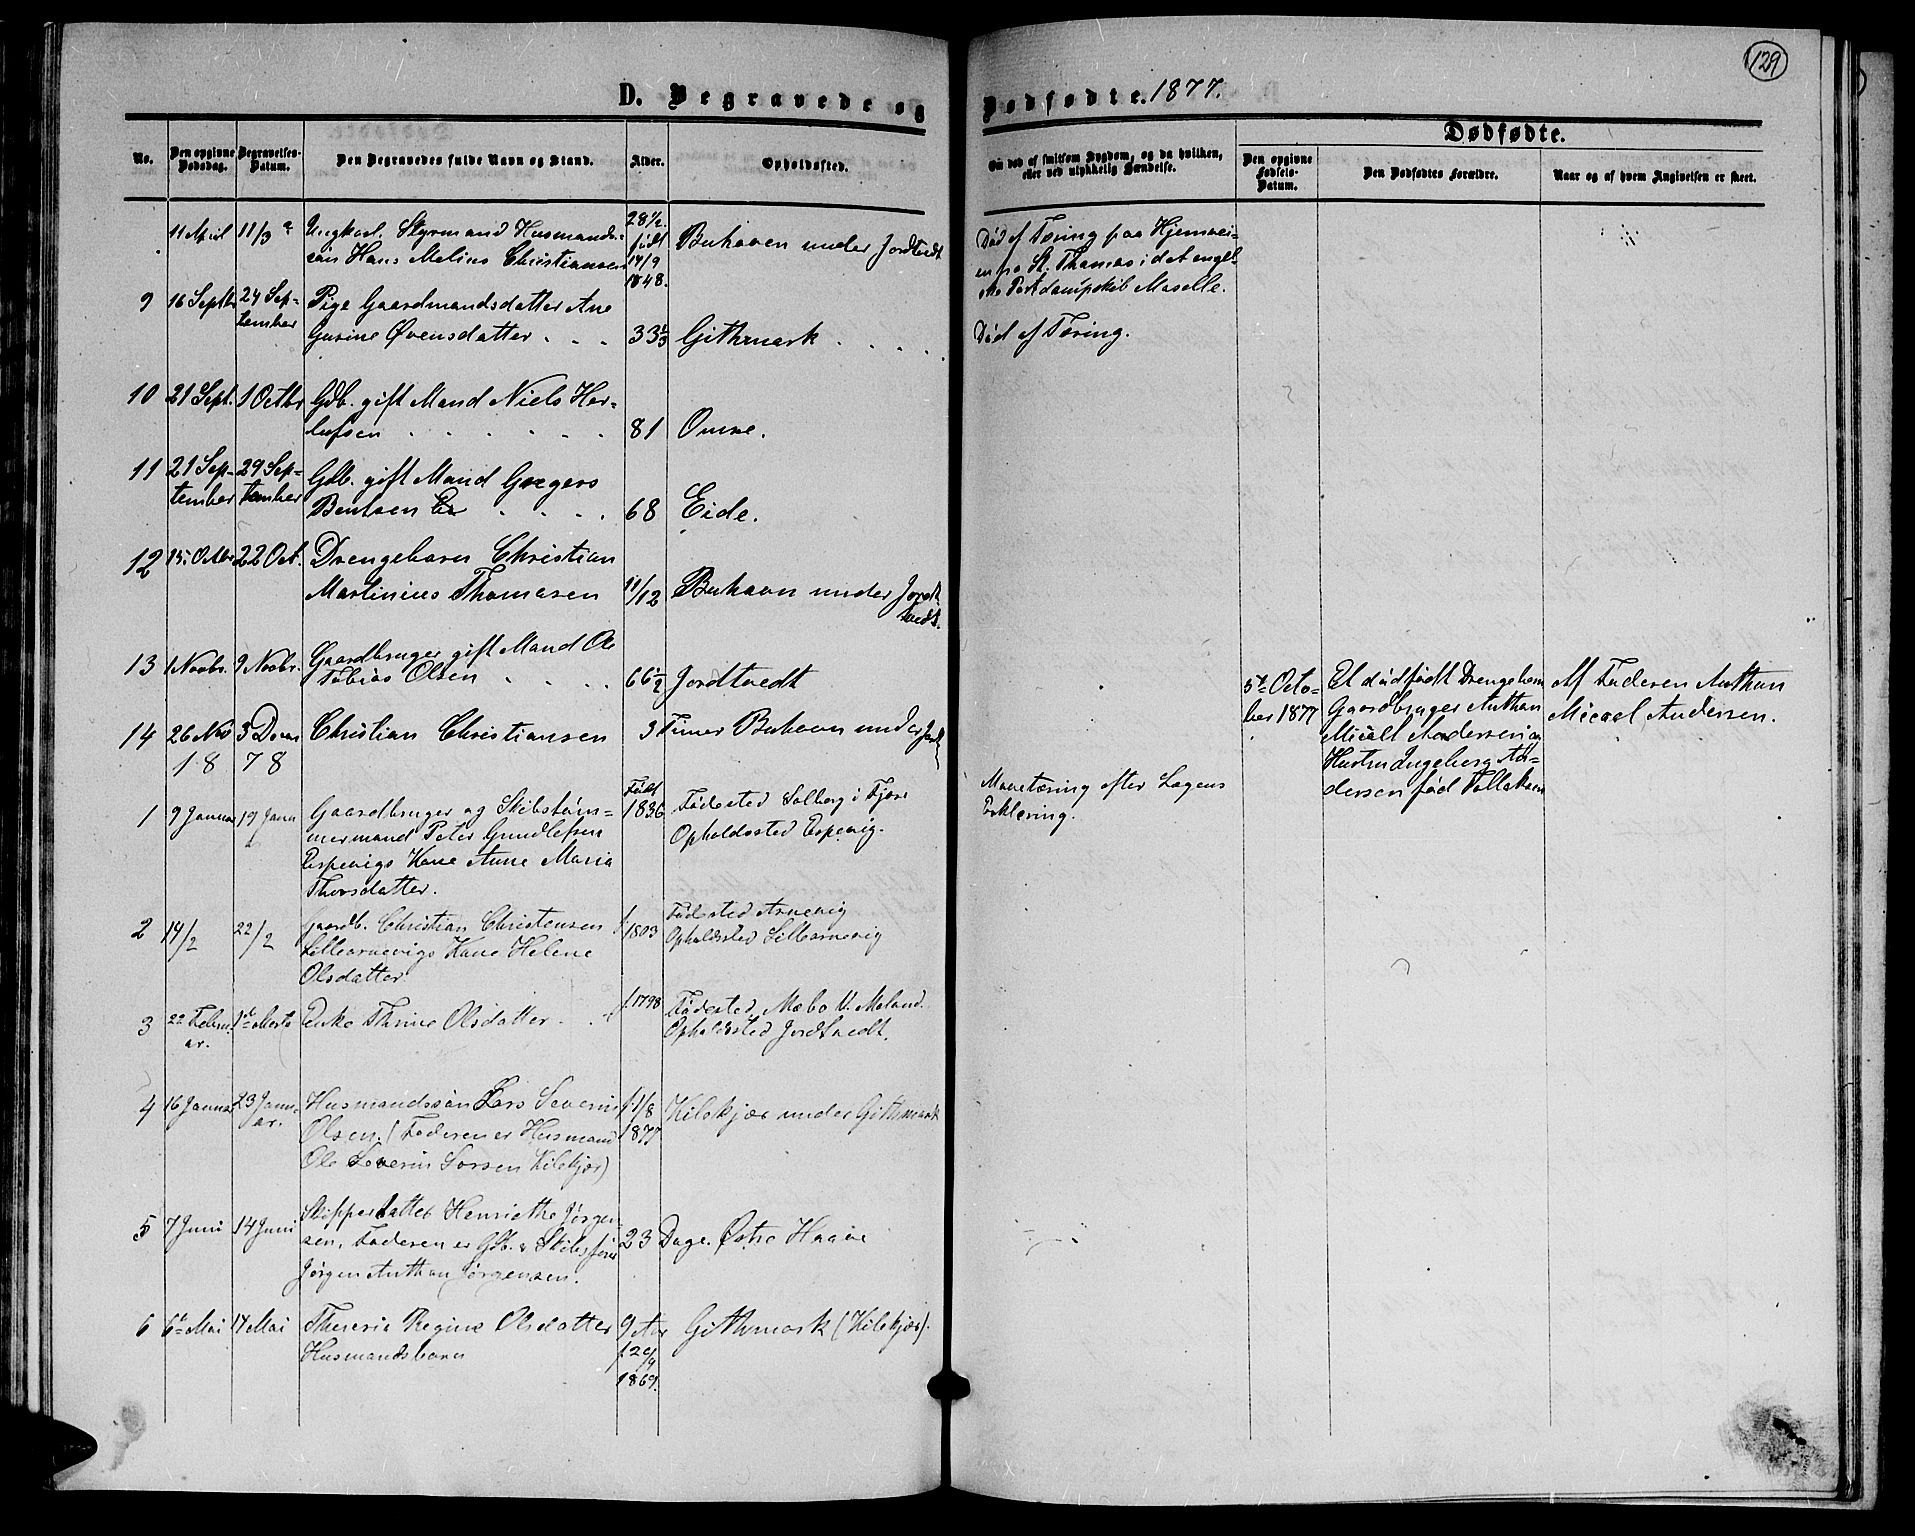 129
D. Begravede og Dødfødte. 1877.
Dødfødte.
No.
Den opgivne Dødsdag.
Begravelses-Datum.
Den Begravedes fulde Navn og Stand.
Alder.
Opholdssted.
Om død af smitsom Sygdom, og da hvilken, eller ved ulykkelig Hændelse.
Den opgivne Fødsels-Datum.
Den Dødfødtes Forældre.
Naar og af hvem Angivelsen er skeet.
11 April 11/9 Ungkarl. Styrmand Husmands-
søn Hans Melius Christiansen
28½.
født
14/9
1848.
Buhaven under Jordtvedt
Død af Tæring paa Hjemvei-
en fra St. Thomas i det engel-
ske Postdampskib Moselle.
9 16 Septbr 24 Sep-
tember
Pige Gaardmandsdatter Ane
Gurine Øvensdatter . . . 33⅓ Githmark . . . .
Død af Tæring.
10 21 Sept. 1 Octbr Gdb. gift Mand Niels Her-
lufsen . . . . . . 81 Omre.
11 21 Sep-
tember
29 Sep-
tember
Gdb. gift Mand Gregers
Bentsen . . . . 68 Eide.
12 15. Octbr 22 Oct. Drengebarn Christian
Martinius Thomasen 11/12 Buhavn under Jordt
tvedt.
13 1 Novbr. 9 Novbr. Gaardbruger gift Mand Ole
Tobias Olsen . . . . 66½ Jordtvedt
5te Octo-
ber 1877
Et dødfødt Drengebarn
Gaardbruger Anthon
Micael Andersen og
Hustru Ingeborg An-
dersen fød Tallaksen
Af Faderen Anthon
Micael Andersen.
14 26 Nov 3 Decm Christian Christiansen 3 Timer Buhavn under Jordt
18 78
1 9 Januar 19 Janu Gaardbruger og Skibstøm-
mermand Peter Gundlefsen
Espevigs Kone Anne Maria
Thorsdatter.
Født
1836
Fødested Solberg i Fjære
Opholdssted Espevig.
Mavetæring efter Lægens
Erklæring.
2 14/2 22/2 Gaardb. Christian Christensen
Lillearnevigs Kone Helene
Olsdatter
f.
1803
Fødested Arnevig
Opholdssted Lillearnevig
3 22 Febru
ar.
1te Marts Enke Thrine Olsdatter . . f. 1798 Fødested Mæbø V. Moland
Opholdssted Jordtvedt.
4 16 Januar 23 Janu
ar.
Husmandssøn Lars Severin
Olsen. (Faderen er Husmand
Ole Severin Larsen Kilekjær)
f. 1/8
1877
Kilekjær under Githmark
5 7 Juni 14 Juni Skipperdatter Henriethe Jørgen-
sen, Faderen er Gdb. & Skibsfører
Jørgen Anthon Jørgensen.
23 Dage. Østre Haave
6 6te Mai 14 Mai Theresia Regine Olsdatter
Husmandsbarn
9 Aar
f. 29/9
1869.
Githmark (Kilekjær).